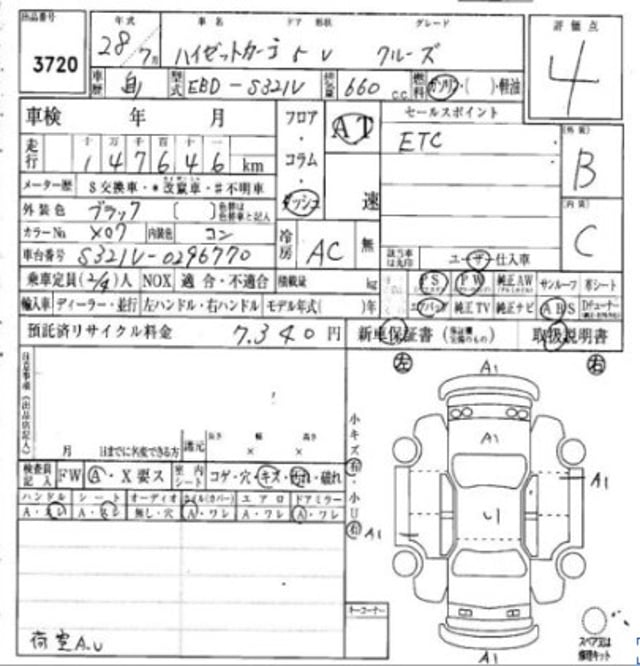 出品番号 年式 車名 ドア 形状 グレード 評価点
3720 28/7月 ハイゼットカーゴ 5 V クルーズ 4
車歴 自 型式 EBD-S321V 排気量 660 c.c. 燃料 ガソリン・( )・軽油
車検 年 月 フロア・コラム・ダッシュ AT 速 セールスポイント
ETC
外装 B
内装 C
走行 十 万 千 百 十 一
1 4 7 6 4 6 km
メーター歴 $交換車・*改竄車・#不明車
外装色 ブラック [ ] 色替は色替車と記入
カラーNo. X07 内装色 コン 冷房 AC 無
車台番号 S321V-0296770 該当車は丸印 ユーザー仕入車
乗車定員(2/4)人 NOX 適合・不適合 積載量 kg PS PW 純正AW サンルーフ 革シート
輸入車 ディーラー・並行 左ハンドル・右ハンドル モデル年式( )年 エアバック 純正TV 純正ナビ ABS
預託済リサイクル料金 7,340円 新車保証書 取扱説明書
左 右
注意事項(出品店記入)
月 日までに名変できる方 諸元 長さ 幅 高さ
× ×
検査員記入 FW A・X要ス 室内シート コゲ・穴・キズ・汚れ・破れ
ハンドル シート オーディオ ホイル(カバー) エアロ ドアミラー
A・スレ A・スレ 無し・穴 A・ワレ A・ワレ A・ワレ
小キズ有・小U有
A1
A1
A1
A1
A1
荷室A.U
コーナー
スペアタイヤ 修理キット